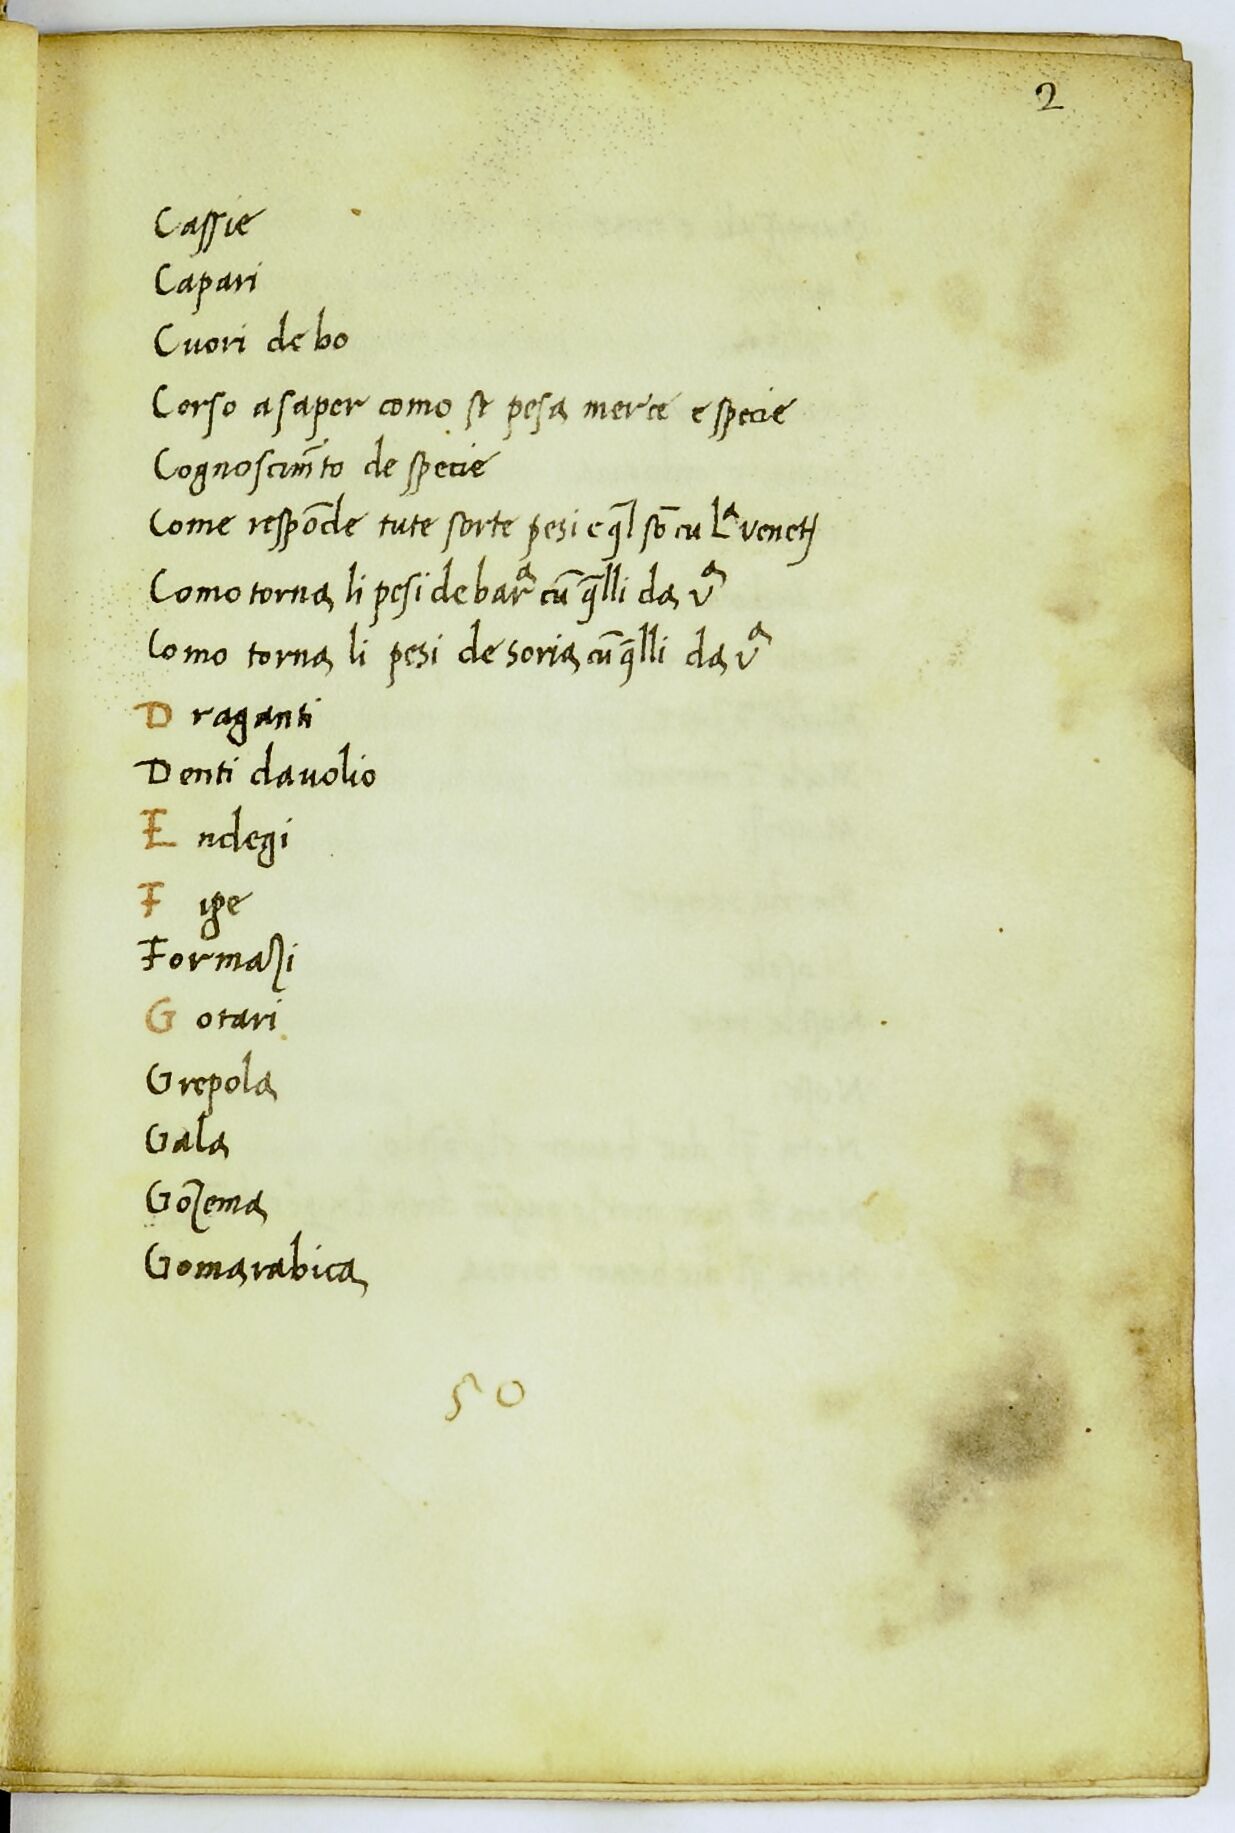 2
Cassie
Capari
Cuori de bo
Corso a saper como se pesa merce e specie
Cognoscim̅to de specie
Come respo̅de tute sorte pesi e q̅l so̅ cu Lᵃ venetꝫ
Como torna li pesi de barᵃ cu̅ q̅lli da vᵃ
Como torna li pesi de soria cu̅ q̅lli da vᵃ
D raganti
Denti davolio
E ndegi
F
Formaʒi
G otari
Grepola
Gala
Goʒema
Gomarabica
50